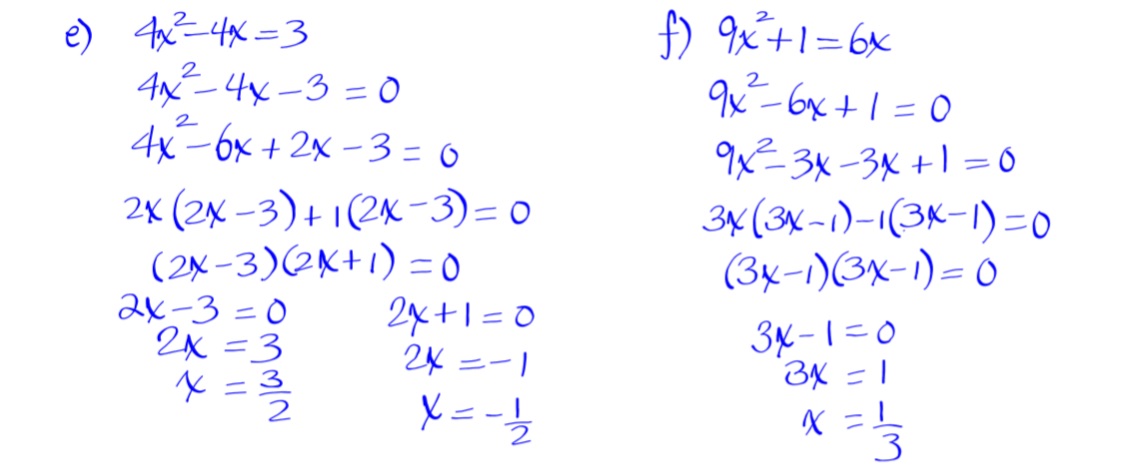 e) 4x²-4x=3
4x²-4x-3=0
4x²-6x+2x-3=0
2x(2x-3)+1(2x-3)=0
(2x-3)(2x+1)=0
2x-3=0 2x+1=0
2x=3 2x=-1
x=3/2 x=-1/2
f) 9x²+1=6x
9x²-6x+1=0
9x²-3x-3x+1=0
3x(3x-1)-1(3x-1)=0
(3x-1)(3x-1)=0
3x-1=0
3x=1
x=1/3